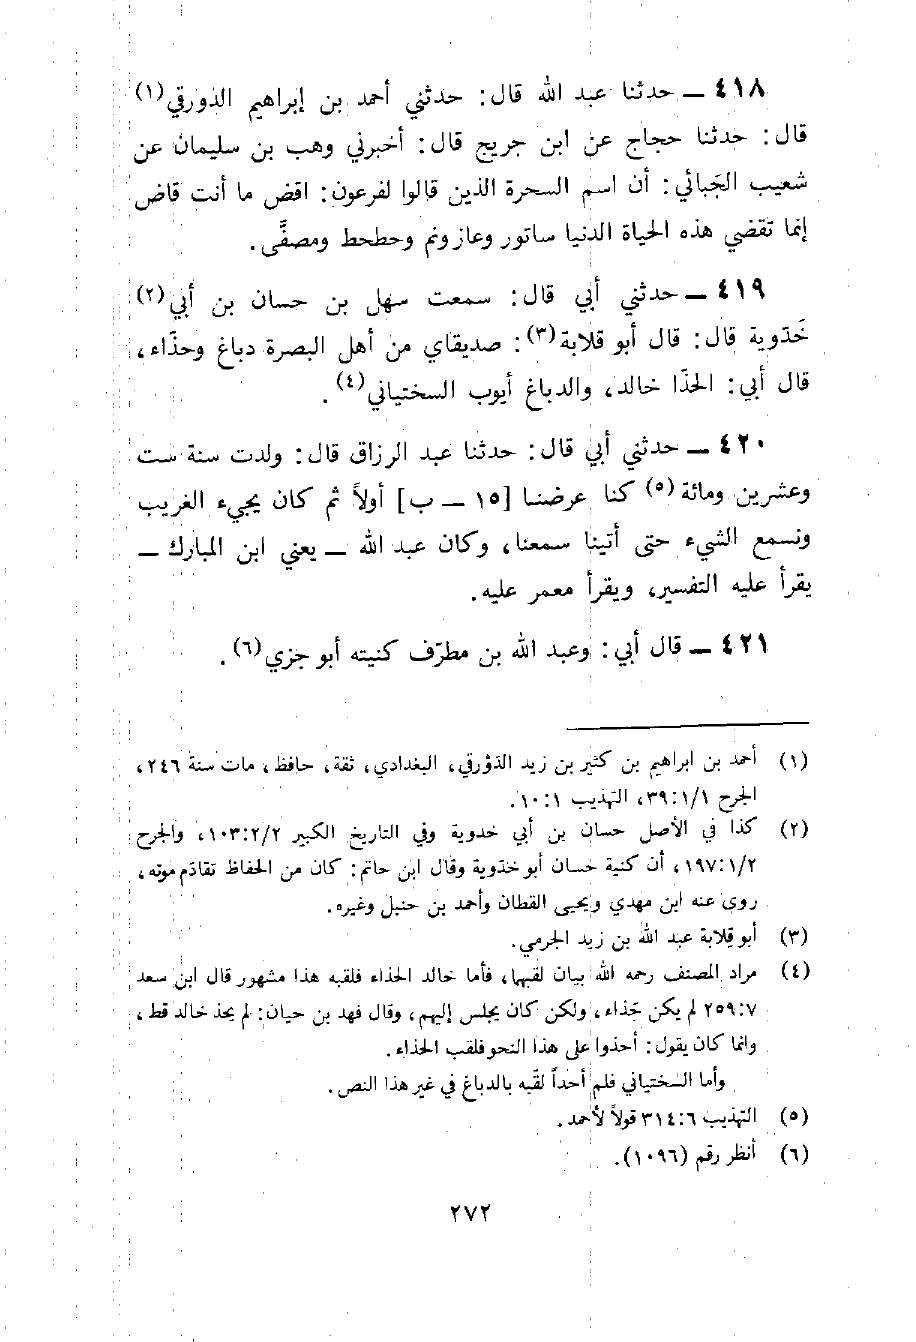 ٤١٨ ــ حدثنا عبد الله قال: حدثني أحمد بن إبراهيم الدورقي(١)
قال: حدثنا حجاج عن ابن جريج قال: أخبرني وهب بن سليمان عن
شعيب الجَبائي: أن اسم السحرة الذين قالوا لفرعون: اقض ما أنت قاض
إنما تقضي هذه الحياة الدنيا ساتور وعازونم وحطحط ومصفَّى.
٤١٩ ــ حدثني أبي قال: سمعت سهل بن حسان بن أبي(٢)
خَدّوية قال: قال أبو قلابة(٣): صديقاي من أهل البصرة دباغ وحذّاء،
قال أبي: الحذّا خالد، والدباغ أيوب السختياني(٤).
٤٢٠ ــ حدثني أبي قال: حدثنا عبد الرزاق قال: ولدت سنة ست
وعشرين ومائة(٥) كنا عرضنا [١٥ ــ ب] أولاً ثم كان يجيء الغريب
ونسمع الشيء حتى أتينا سمعنا، وكان عبد الله ــ يعني ابن المبارك ــ
يقرأ عليه التفسير، ويقرأ معمر عليه.
٤٢١ ــ قال أبي: وعبد الله بن مطرّف كنيته أبو جزي(٦).
(١) أحمد بن ابراهيم بن كثير بن زيد الدَّوْرقي، البغدادي، ثقة، حافظ، مات سنة ٢٤٦،
الجرح ٣٩:١/١، التهذيب ١٠:١.
(٢) كذا في الأصل حسان بن أبي خدوية وفي التاريخ الكبير ١٠٣:٢/٢، والجرح
١٩٧:١/٢، أن كنية حسان أبو خدّوية وقال ابن حاتم: كان من الحفاظ تقادَم موته،
روى عنه ابن مهدي ويحيى القطان وأحمد بن حنبل وغيره.
(٣) أبو قِلابة عبد الله بن زيد الجرمي.
(٤) مراد المصنف رحمه الله بيان لقبها، فأما خالد الحذاء فلقبه هذا مشهور قال ابن سعد
٢٥٩:٧ لم يكن حَذاء، ولكن كان يجلس إليهم، وقال فهد بن حيان: لم يحذ خالد قط،
وانما كان يقول: أحذوا على هذا النحو فلقب الحذاء.
وأما السختياني فلم أحداً لقّبه بالدباغ في غير هذا النص.
(٥) التهذيب ٣١٤:٦ قولاً لأحمد.
(٦) أنظر رقم (١٠٩٦).
٢٧٢